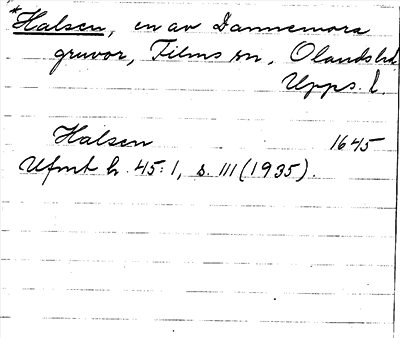 *Halsen, en av Dannemora
gruvor, Films sn, Olandshd
Upps. l.
Halsen 1645
Ufmt h. 45:1, s. 111 (1935).